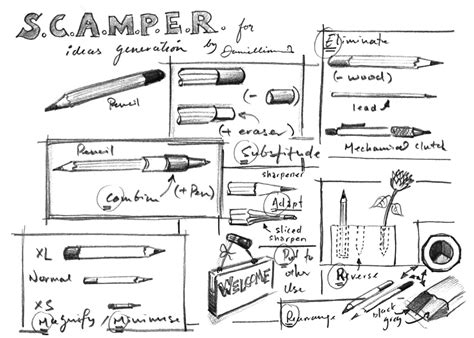 S.C.A.M.P.E.R. for
ideas generation by
Pencil
(-
)
(+ eraser)
Substitude
Eliminate
(- wood)
lead
Mechanical clutch
Pencil
Combine
(+ Pen)
sharpener
Adapt
sliced
sharpen
XL
Normal
XS
Magnify / Minimise
WELCOME
Put to
other
use
Reverse
Rearrange
black
grey